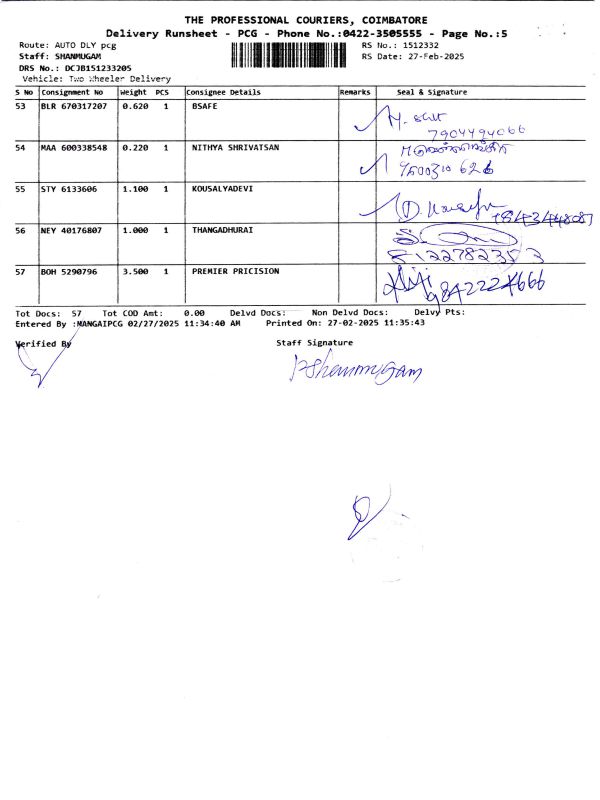 THE PROFESSIONAL COURIERS, COIMBATORE
Delivery Runsheet - PCG - Phone No.:0422-3505555 - Page No.:5
Route: AUTO DLY pcg RS No.: 1512332
Staff: SHANMUGAM RS Date: 27-Feb-2025
DRS No.: DCJB151233205
Vehicle: Two Wheeler Delivery
S No Consignment No Weight PCS Consignee Details Remarks Seal & Signature
53 BLR 670317207 0.620 1 BSAFE
7904494066
54 MAA 600338548 0.220 1 NITHYA SHRIVATSAN
55 STY 6133606 1.100 1 KOUSALYADEVI
56 NEY 40176807 1.000 1 THANGADHURAI
8122782353
57 BOH 5290796 3.500 1 PREMIER PRICISION
9842224666
Tot Docs: 57 Tot COD Amt: 0.00 Delvd Docs: Non Delvd Docs: Delvy Pts:
Entered By :MANGAIPCG 02/27/2025 11:34:40 AM Printed On: 27-02-2025 11:35:43
Verified By Staff Signature
Shanmugam